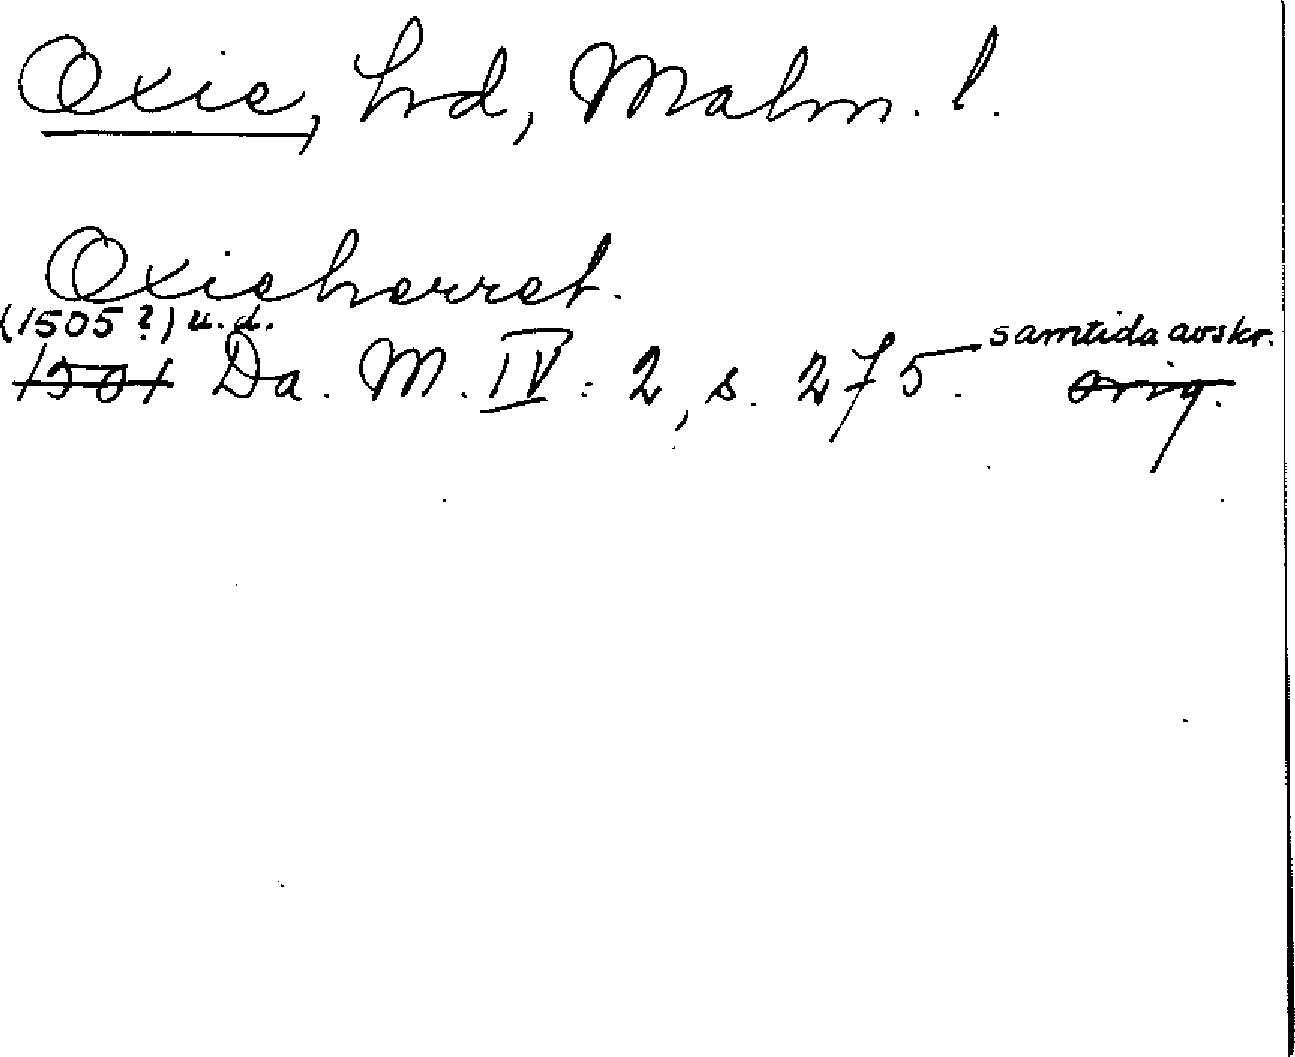 Oxie, hd, Malm. l.
Oxieherret.
(1505?) u.d.
1501 Da. M. IV: 2, s. 275. samtida avskr.
orig.